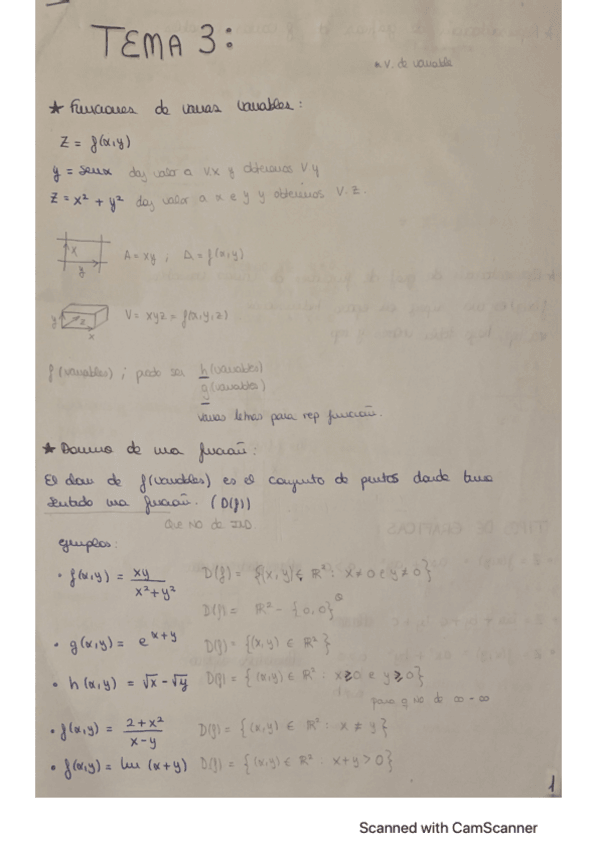 TEMA 3:
n.V. de variable
★ Funciones de varias variables:
Z = f(x,y)
y = senx day valor a Vx y obtenemos V y
Z = x² + y² day valor a x e y y obtenemos V. Z.
x
y
A = xy ; A = f(x,y)
y z x
V = xyz = f(x,y,z)
f (variables) ; puedo ser h(variables)
g(variables)
varias letras para rep función.
★ Dominio de una función:
El dom de f(variables) es el conjunto de puntos donde tiene
sentido una función. (D(f))
Que NO de IND.
ejemplos:
• f(x,y) = xy / x²+y² D(f) = {(x,y) ∈ R² : x≠0 e y≠0}
D(f) = R² - {0,0}
• g(x,y) = e^x+y D(f) = {(x,y) ∈ R²}
• h(x,y) = √x - √y D(f) = {(x,y) ∈ R² : x≥0 e y≥0}
para q NO de ∞ - ∞
• f(x,y) = 2+x² / x-y D(f) = {(x,y) ∈ R² : x ≠ y}
• f(x,y) = ln (x+y) D(f) = {(x,y) ∈ R² : x+y > 0}
1
Scanned with CamScanner